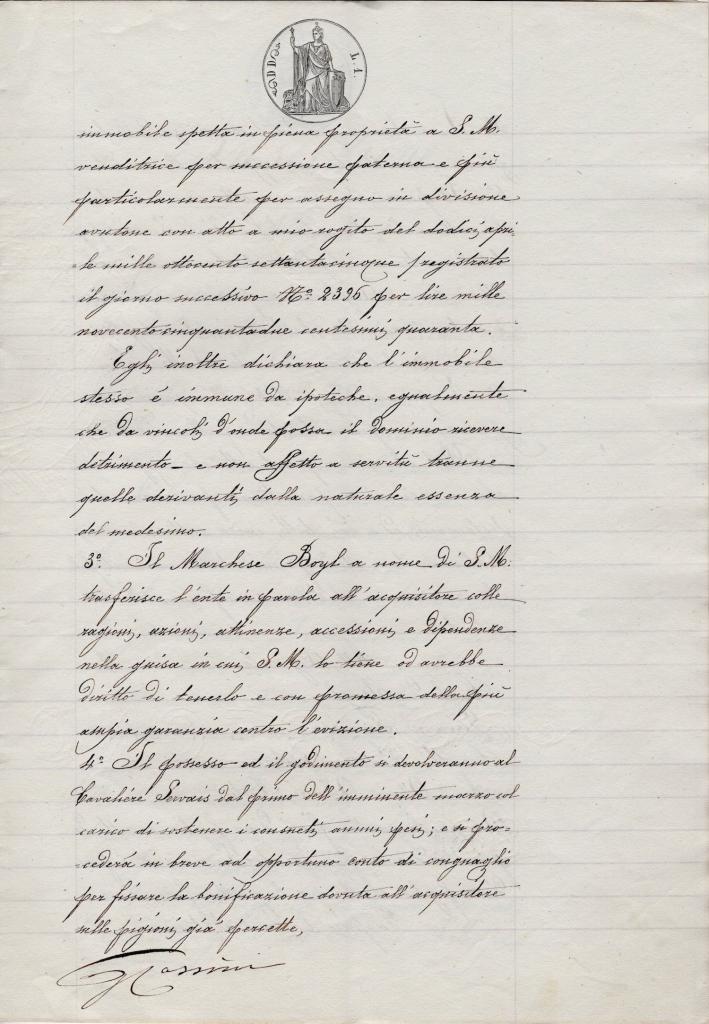 DD L. 1.
immobile spetta in piena proprietà a S. M.
venditrice per successione paterna e più
particolarmente per assegno in divisione
avutone con atto a mio rogito del dodici apri-
le mille ottocento settantacinque /registrato
il giorno successivo N.º 2396 per lire mille
novecentocinquantadue centesimi quaranta.
Egli inoltre dichiara che l'immobile
stesso è immune da ipoteche, egualmente
che da vincoli d'onde possa il dominio ricevere
detrimento - e non affetto a servitù tranne
quelle derivanti dalla naturale essenza
del medesimo.
3º. Il Marchese Boyl a nome di S. M.
trasferisce l'ente in parola all'acquisitore colle
ragioni, azioni, attinenze, accessioni e dipendenze
nella guisa in cui S. M. lo tiene od avrebbe
diritto di tenerlo e con promessa della più
ampia garanzia contro l'evizione.
4º Il possesso ed il godimento si devolveranno al
Cavaliere Servais dal primo dell'imminente marzo col
carico di sostenere i consueti annui pesi; e si pro-
cederà in breve ad opportuno conto di conguaglio
per fissare la bonificazione dovuta all'acquisitore
sulle pigioni già percette,
Cassini